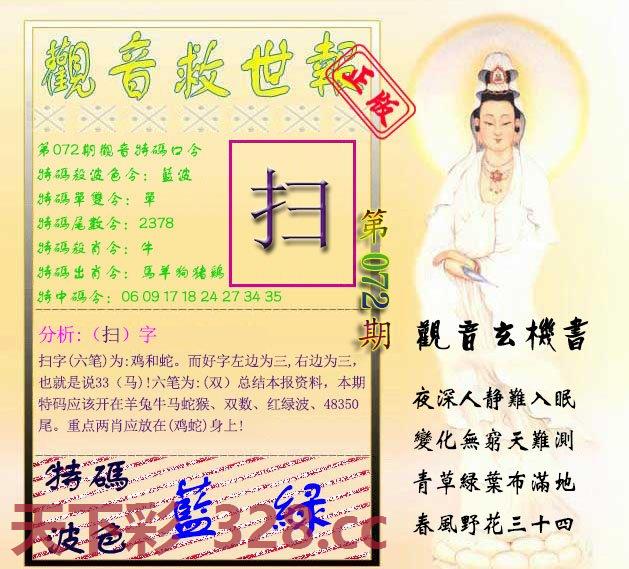 觀音救世報
正版
第072期觀音特碼口令
特碼殺波色令：藍波
特碼單雙令：單
特碼尾數令：2378
特碼殺肖令：牛
特碼出肖令：馬羊狗猪鷄
特中碼令：06 09 17 18 24 27 34 35
扫
第072期
分析:（扫）字
扫字(六笔)为:鸡和蛇。而好字左边为三,右边为三，
也就是说33（马)!六笔为:(双）总结本报资料，本期
特码应该开在羊兔牛马蛇猴、双数、红绿波、48350
尾。重点两肖应放在(鸡蛇)身上!
特碼
波色
藍 綠
觀音玄機書
夜深人静難入眠
變化無窮天難測
青草綠葉布滿地
春風野花三十四
天下彩 328.cc